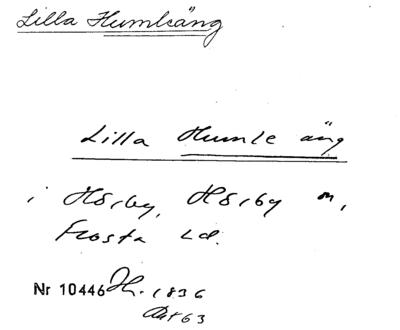 Lilla Humleäng
Lilla Humle äng
i Hörby, Hörby sn,
Frosta Ld.
Nr 10446 Jh. 1836
Akt 63